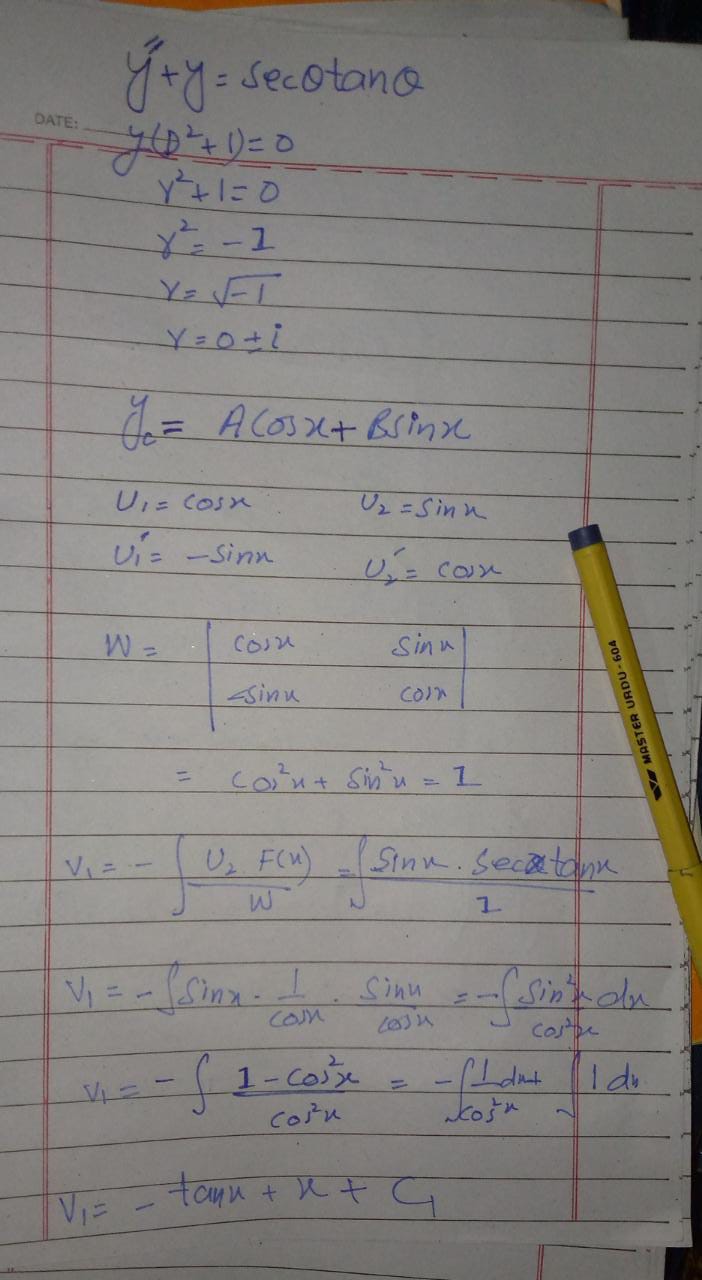 y''+y = secθtanθ
DATE:
y(D²+1)=0
r²+1=0
r²= -1
r= √-1
r=0±i
y_c = Acosx+Bsinx
U₁= cosx U₂=sinx
U₁'= -sinx U₂'= cosx
W = | cosx sinx |
| -sinx cosx |
= cos²x + sin²x = 1
V₁= - ∫ U₂ F(x) / W = ∫ sinx . secx tanx / 1
V₁ = -∫ sinx . 1/cosx . sinx/cosx = -∫ sin²x/cos²x dx
V₁= - ∫ 1-cos²x / cos²x = -∫ 1/cos²x dx + ∫ 1 dx
V₁= - tanx + x + C₁
MASTER URDU-604